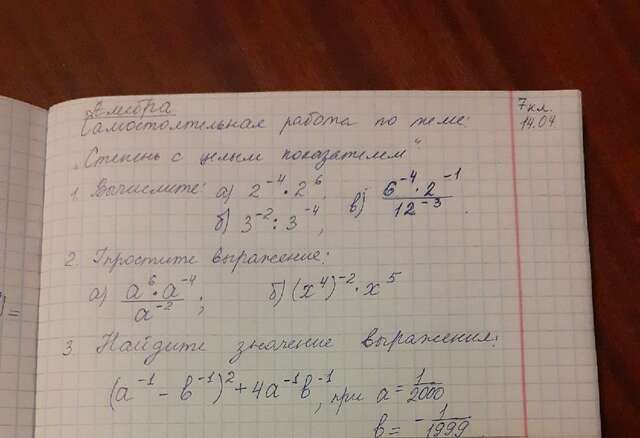 Алгебра
7 кл.
14.04
Самостоятельная работа по теме:
„Степень с целым показателем"
1. Вычислите: а) 2⁻⁴ · 2⁶; в) (6⁻⁴ · 2⁻¹)/12⁻³.
б) 3⁻² : 3⁻⁴;
2. Упростите выражение:
а) (a⁶ · a⁻⁴)/a⁻²; б) (x⁴)⁻² · x⁵
3. Найдите значение выражения:
(a⁻¹ − b⁻¹)² + 4a⁻¹b⁻¹, при a = 1/2000
b = −1/1999